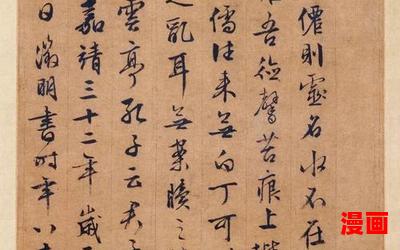 僊則靈名水不在
吾德馨苔痕上階
儒往来無白丁可
之亂耳無案牘之
雲亭孔子云君子
嘉靖三十二年歲
日徵明書時年八十
漫画